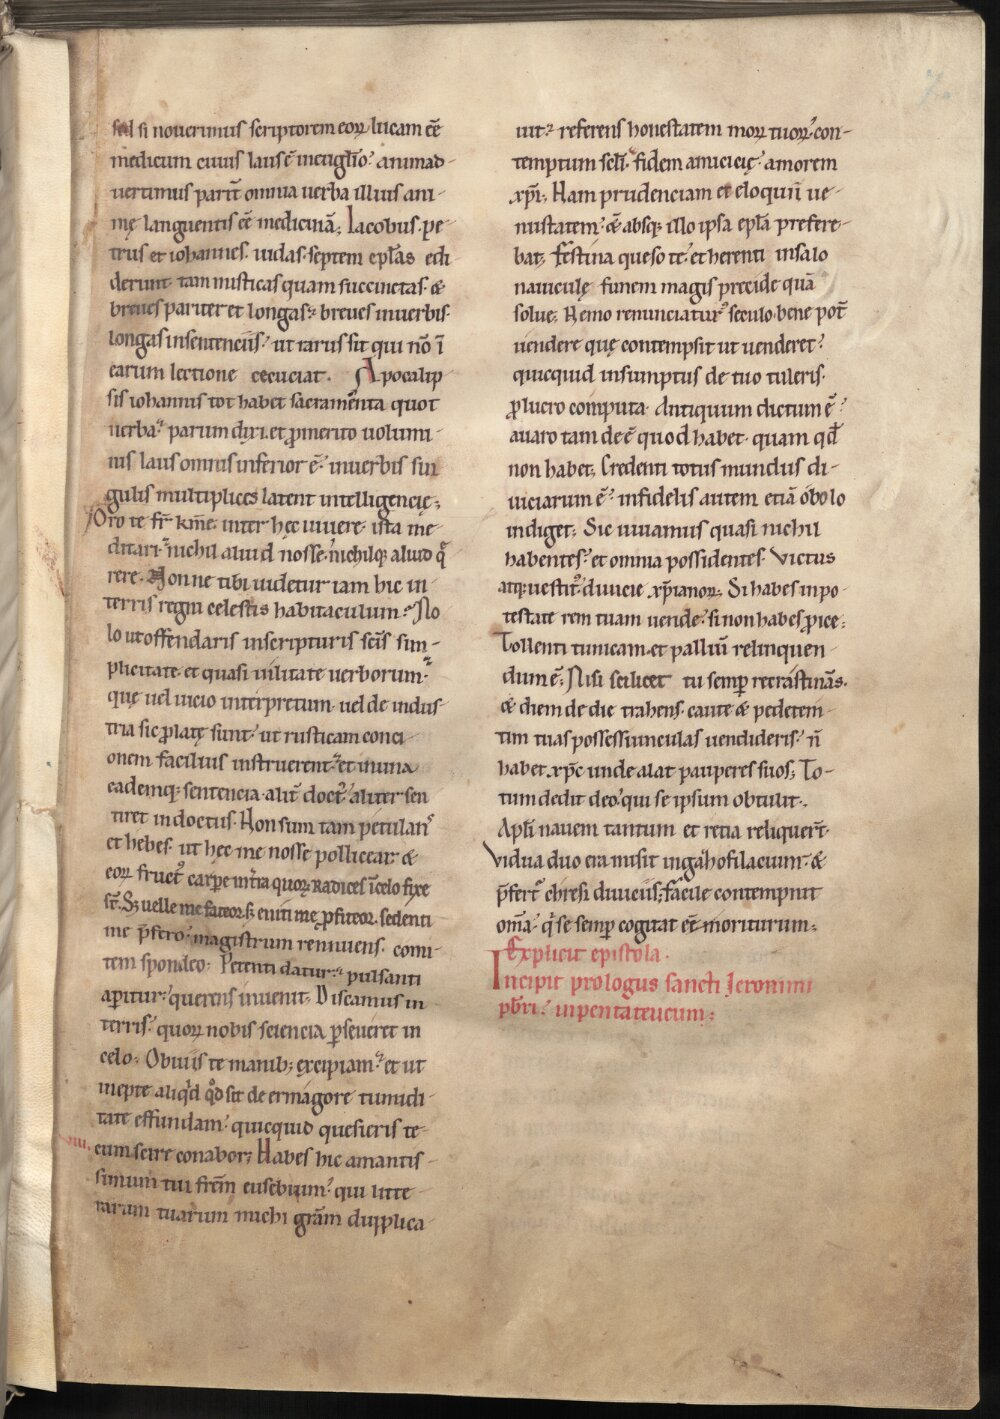 sed si nouerimus scriptorem eoꝝ lucam eē
medicum cuius laus ē in euglio. animad-
uertimus parit̄ omnia uerba illius ani-
mę languentis eē medicinā; Iacobus. pe-
trus et iohannes. iudas. septem eplas edi-
derunt. tam misticas quam succinctas. &
breues pariter et longas; breues in uerbis.
longas in sentenciis. ut rarus sit qui nō ī
earum lectione cecuciat. Apocalip-
sis iohannis tot habet sacramenta quot
uerba. parum dixi. et ꝓ merito uolumi-
nis laus omnis inferior ē. in uerbis sin-
gulis multiplices latent intelligencię;
Oro te fr̄ km̄e. inter hęc uiuere. ista me-
ditari. nichil aliud nosse. nichilqꝫ aliud q̄-
rere. Nonne tibi uidetur iam hic in
terris regni celestis habitaculum? No-
lo ut offendaris in scripturis sc̄is sim-
plicitate. et quasi uilitate uerborum.
quę uel uicio interpretum. uel de indus-
tria sic ꝓlatę sunt. ut rusticam conci-
onem facilius instruerent. et in una
eademqꝫ sentencia. alit̄ doct᷒. aliter sen-
tiret indoctus. Non sum tam petulans
et hebes. ut hęc me nosse pollicear &
eoꝝ fruct᷒ carpe in tr̄a quoꝝ radices ī celo fixe
st̄. Sꝫ uelle me fateor. sꝫ eniti me ꝓfiteor. sedenti
me p̄fero. magistrum renuens. comi-
tem spondeo. Petenti datur. pulsanti
aꝑitur. querens inuenit. Discamus in
terris. quoꝝ nobis sciencia ꝑseueret in
celo. Obuiis te manibꝫ excipiam. et ut
inepte aliqͥd qͦd sit de ermagore tumidi-
tate effundam. quicquid quesieris te-
cum scire conabor; Habes hic amantis-
simum tui fr̄em eusebium. qui litte-
rarum tuarum michi grām duplica-
uit. referens honestatem moꝝ tuoꝝ. con-
temptum scl̄i. fidem amicicię. amorem
xp̄i; Nam prudenciam et eloquii ue-
nustatem. & absqꝫ illo ipsa epl̄a prefere-
bat; Festina queso te. et herenti in salo
nauiculę funem magis precide quā
solue; Nemo renunciatur᷒ seculo. bene pot̄
uendere quę contempsit ut uenderet.
quicquid in sumptus de tuo tuleris.
ꝓ lucro computa. Antiquum dictum ē.
auaro tam deē quod habet. quam qd̄
non habet; Credenti totus mundus di-
uiciarum ē. infidelis autem etiā obolo
indiget; Sic uiuamus quasi nichil
habentes. et omnia possidentes. Victus
atqꝫ uestit᷒. diuicię xp̄ianoꝝ. Si habes in po-
testate rem tuam uende. si non habes ꝓice;
Tollenti tunicam. et palliū relinquen-
dum ē; Nisi scilicet tu semꝑ recrastinās.
& diem de die trahens. caute & pedetem-
tim tuas possessiunculas uendideris. n̄
habet xp̄c unde alat pauperes suos; To-
tum dedit deo. qui se ipsum obtulit.
Apl̄i nauem tantum et retia reliquer̄t.
Vidua duo era misit in gazhofilacium. &
p̄fert᷒ chresi diuiciis; facile contempnit
om̄a. qͥ se semꝑ cogitat eē moriturum;
Explicit epistola.
Incipit prologus sancti Ieronimi
pb̄ri. in pentateucum;